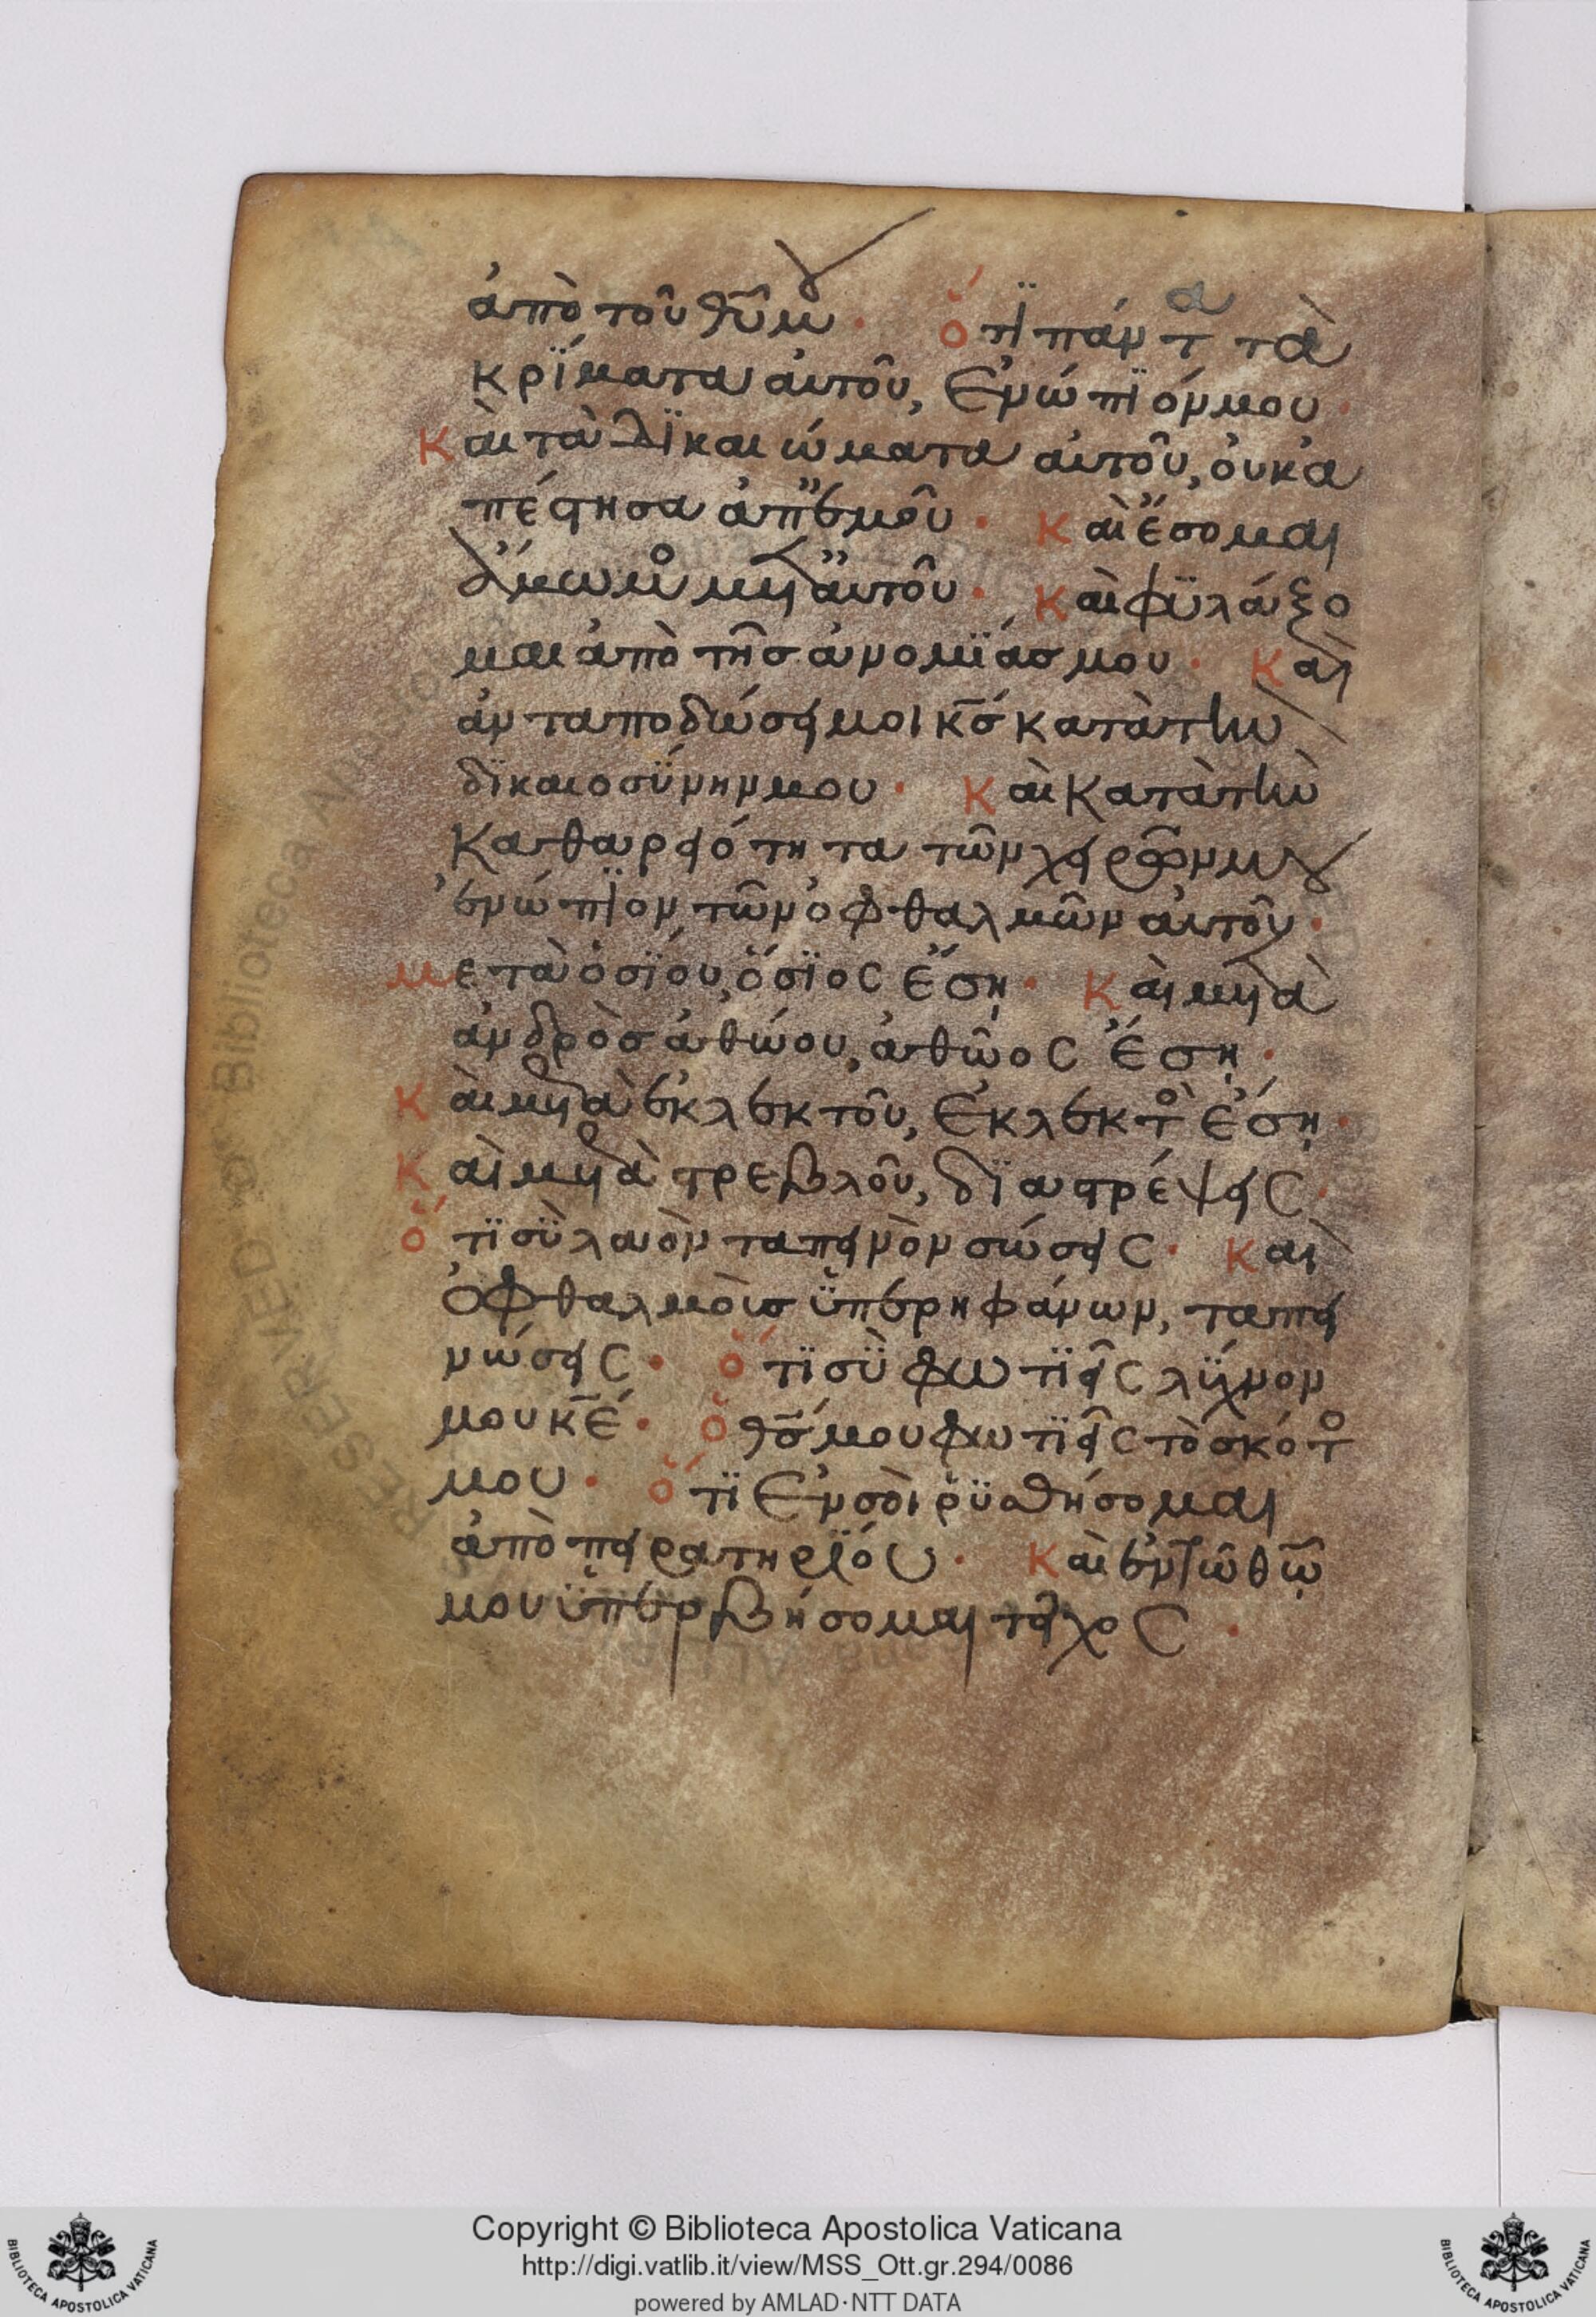 ἀπὸ τοῦ θῦ μου· ὅτϊ πάντα τὰ
κρΐματα αὐτοῦ, ἐνώπϊόν μου·
Καὶ τὰ δϊκαιώματα αὐτοῦ, οὐκ ἀ
πέστησα ἀπ ἐμοῦ· Καὶ ἔσομαι
ἄμωμο μετ αὐτοῦ· Καὶ φϋλάξο
μαι ἀπὸ τῆσ ἀνομΐασ μου· Καὶ
ἀνταποδώσει μοι κσ κατὰ τὴν
δϊκαιοσΰνην μου· Καὶ κατὰ τὴν
καθαρειότητα τῶν χειρῶν μου
ἐνώπϊον τῶν ὀφθαλμῶν αὐτοῦ·
Μετὰ ὁσΐου, ὅσϊος ἔσῃ· Καὶ μετὰ
ἀνδρὸσ ἀθώου, ἀθῶος ἔσῃ·
Καὶ μετὰ ἐκλεκτοῦ, ἐκλεκτὸ ἔσῃ·
Καὶ μετὰ στρεβλοῦ, δϊαστρέψεις·
Ὅτϊ σϋ λαὸν ταπεινὸν σώσεις· Καὶ
ὀφθαλμοὺσ ϋπερηφάνων, ταπει
νώσεις· ὅτϊ σϋ φωτϊεῖς λΰχνον
μου κέ· ὁ θσ μου φωτϊεῖς τὸ σκότο
μου· ὅτϊ ἐν σοὶ ῥϋσθήσομαι
ἀπὸ πειρατηρΐου· Καὶ ἐν τῶ θῶ
μου ϋπερβήσομαι τεῖχος·
Copyright © Biblioteca Apostolica Vaticana
http://digi.vatlib.it/view/MSS_Ott.gr.294/0086
powered by AMLAD·NTT DATA
BIBLIOTECA APOSTOLICA VATICANA
BIBLIOTECA APOSTOLICA VATICANA